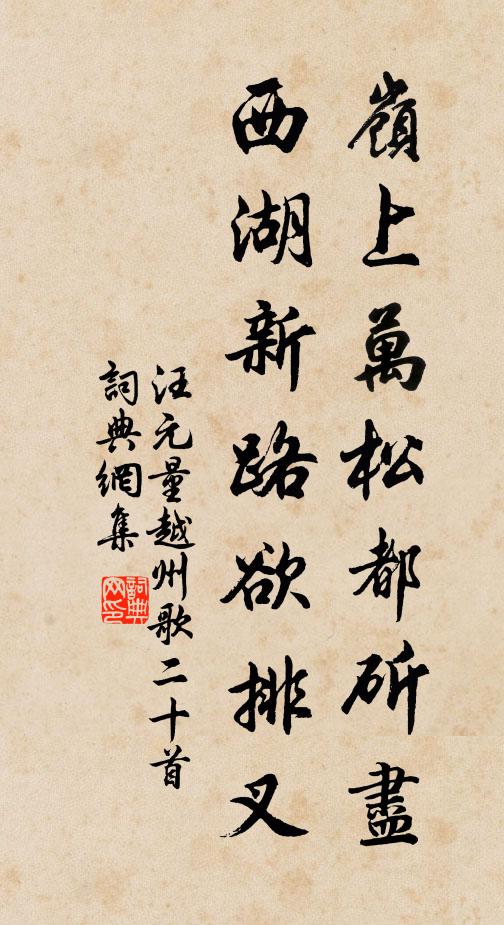 嶺上萬松都斫盡
西湖新路欲排叉
汪元量越州歌二十首
詞典網集
詞典網印